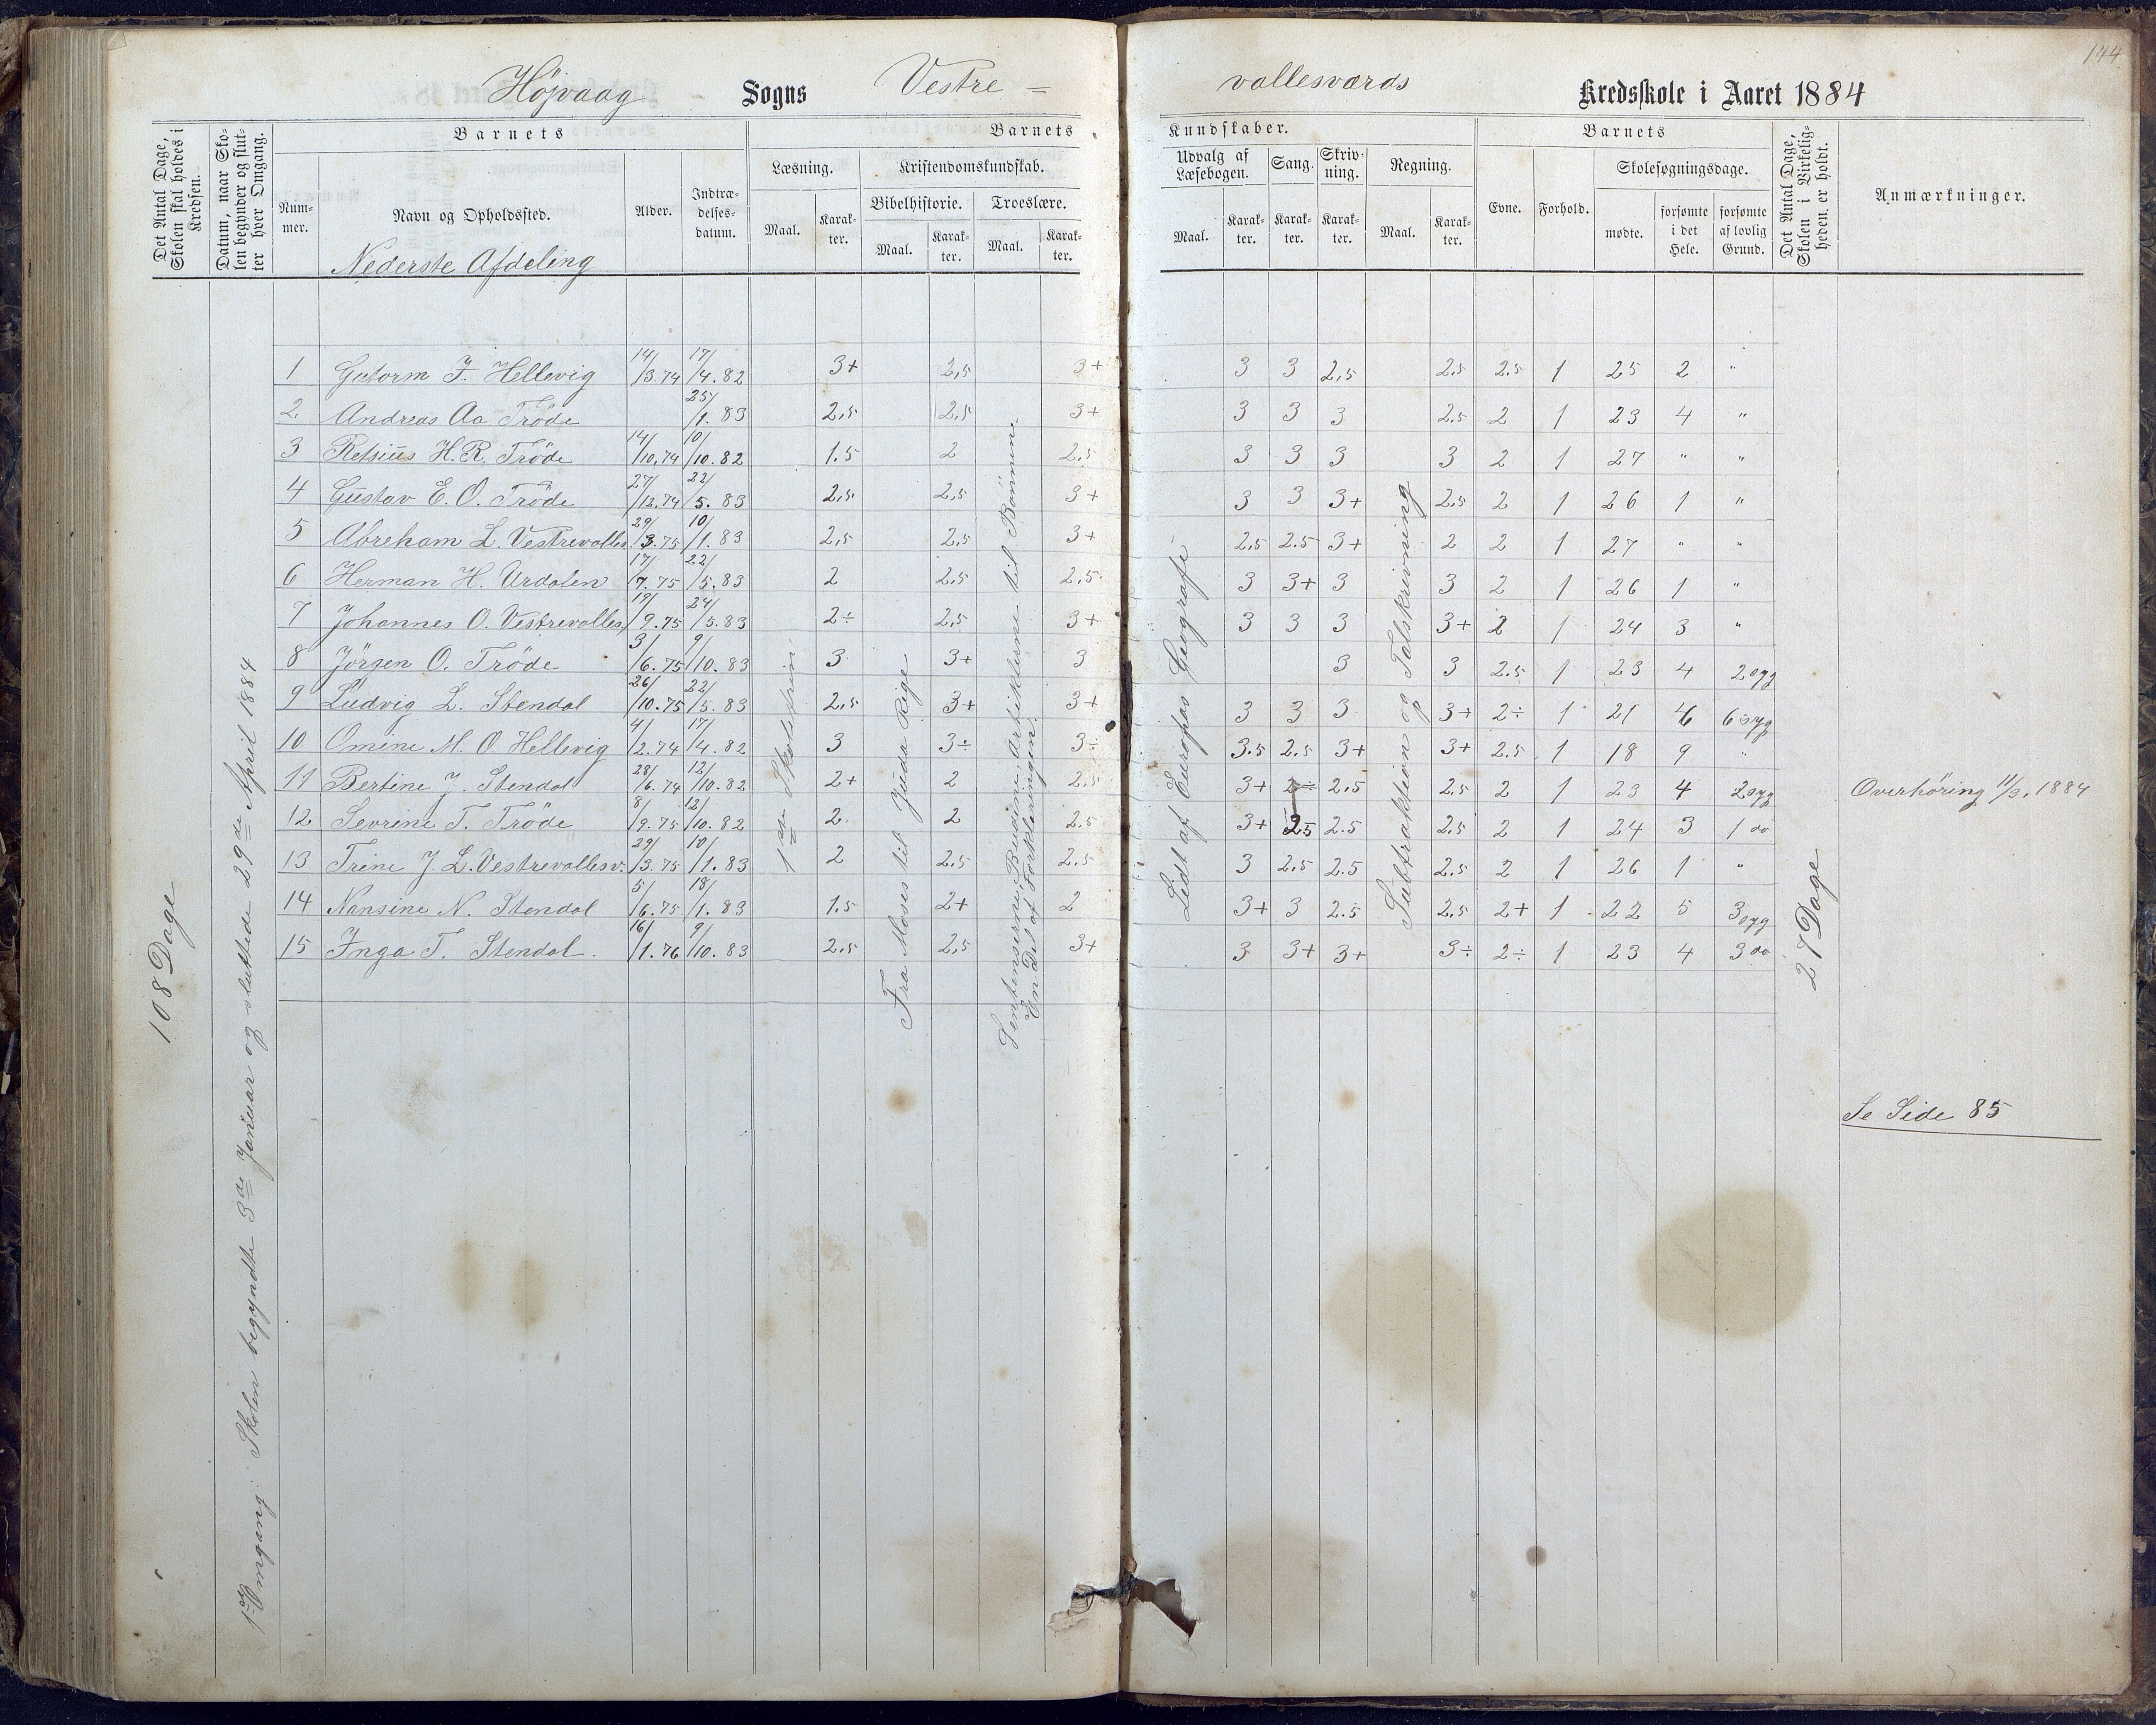 144
Højvaag Sogns Vestre = vallesværds Kredsskole i Aaret 1884
Det Antal Dage, Skolen skal holdes i Kredsen.
Datum, naar Skolen begynder og slutter hver Omgang.
Barnets
Nummer.
Navn og Opholdssted.
Nederste Afdeling
Alder.
Indtrædelsesdatum.
Barnets
Læsning.
Maal.
Karakter.
Kristendomskundskab.
Bibelhistorie.
Maal.
Karakter.
Troeslære.
Maal.
Karakter.
Kundskaber.
Udvalg af Læsebogen.
Maal.
Karakter.
Sang.
Karakter.
Skrivning.
Karakter.
Regning.
Maal.
Karakter.
Barnets
Evne.
Forhold.
Skolesøgningsdage.
mødte.
forsømte i det Hele.
forsømte af lovlig Grund.
Det Antal Dage, Skolen i Virkeligheden er holdt.
Anmærkninger.
108 Dage
1ste Omgang: Skolen begyndte 3de Januar og sluttede 29de April 1884
1ste Skoletrin
Fra Moses til Juda Rige
Sentenserne, Budene, Artiklerne til Bønnene.
En Del af Forklaringen.
Lidt af Europas Geografi
Subtraktion og Talskrivning
27 Dage
1 Gutorm F. Hellevig 14/3.74 17/4.82 3+ 2,5 3+ 3 3 2,5 2.5 2.5 1 25 2 "
2 Andreas Aa Trøde 25/1.83 2,5 2,5 3+ 3 3 3 2.5 2 1 23 4 "
3 Retsius H.R. Trøde 14/10.74 10/10.82 1.5 2 2.5 3 3 3 3 2 1 27 " "
4 Gustav E.O. Trøde 27/12.74 22/5.83 2,5 2,5 3+ 3 3 3+ 2,5 2 1 26 1 "
5 Abreham L. Vestrevalles. 29/3.75 10/1.83 2,5 2,5 3+ 2,5 2.5 3+ 2 2 1 27 " "
6 Herman H. Urdalen 17/7.75 22/5.83 2 2.5 2.5 3 3+ 3 3 2 1 26 1 "
7 Johannes O. Vestrevalles. 19/9.75 24/5.83 2÷ 2,5 3+ 3 3 3 3+ 2 1 24 3 "
8 Jörgen O. Trøde 3/6.75 9/10.83 3 3+ 3 3 3 2.5 1 23 4 2 syg
9 Ludvig L. Stendal 26/10.75 22/5.83 2,5 3+ 3+ 3 3 3 3+ 2÷ 1 21 6 6 syg
10 Omine M.O. Hellevig 4/2.74 17/4.82 3 3÷ 3÷ 3.5 2.5 3+ 3+ 2.5 1 18 9 "
11 Bertine J. Stendal 28/6.74 12/10.82 2+ 2 2.5 3+ 2÷ 2.5 2.5 2 1 23 4 2 syg Overhøring 11/3. 1884
12 Sevrine T. Trøde 8/9.75 12/10.82 2 2 2.5 3+ 2.5 2.5 2.5 2 1 24 3 1 do
13 Trine J.L. Vestrevallesv. 29/3.75 10/1.83 2 2.5 2.5 3 2,5 2.5 2.5 2 1 26 1 "
14 Nansine N. Stendal 5/6.75 18/1.83 1.5 2+ 2 3+ 3 2.5 2.5 2+ 1 22 5 3 syg
15 Inga T. Stendal. 16/1.76 9/10.83 2,5 2,5 3+ 3 3+ 3+ 3÷ 2÷ 1 23 4 3 do
Se Side 85